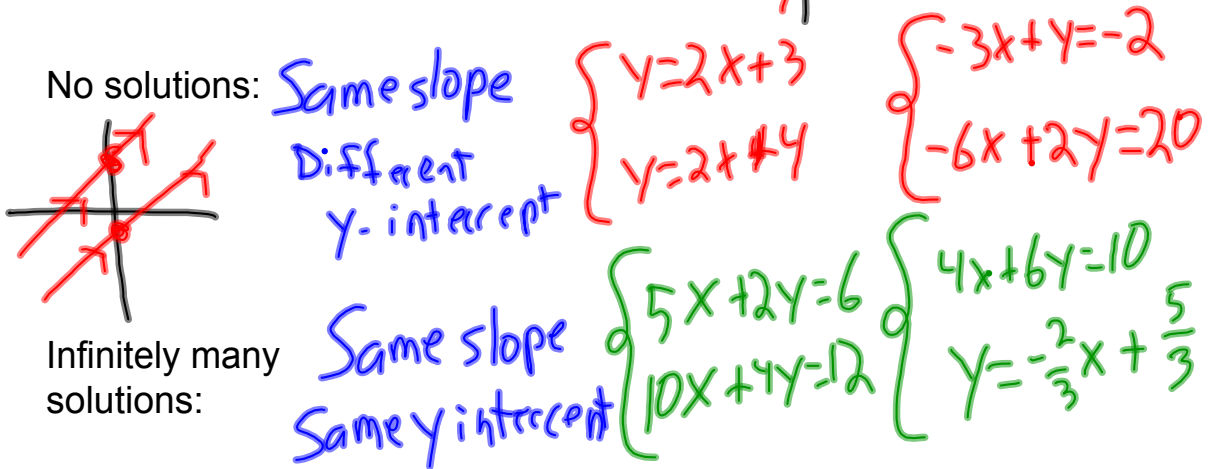 No solutions: Same slope
Different
y-intercept
y=2x+3
y=2x+4
-3x+y=-2
-6x+2y=20
Infinitely many
solutions:
Same slope
Same y intercept
5x+2y=6
10x+4y=12
4x+6y=10
y=-2/3x+5/3